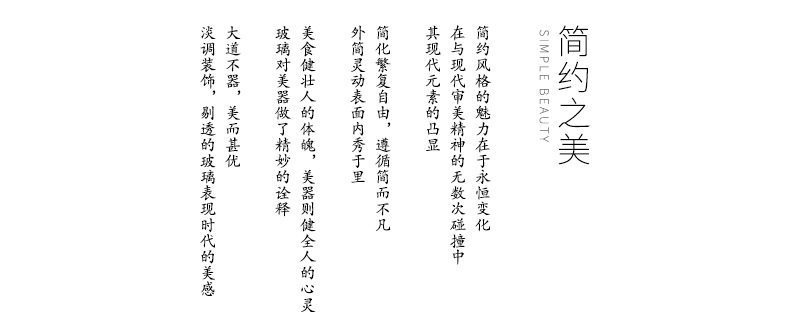 简约之美
SIMPLE BEAUTY
简约风格的魅力在于永恒变化
在与现代审美精神的无数次碰撞中
其现代元素的凸显
简化繁复自由，遵循简而不凡
外简灵动表面内秀于里
美食健壮人的体魄，美器则健全人的心灵
玻璃对美器做了精妙的诠释
大道不器，美而甚优
淡调装饰，剔透的玻璃表现时代的美感